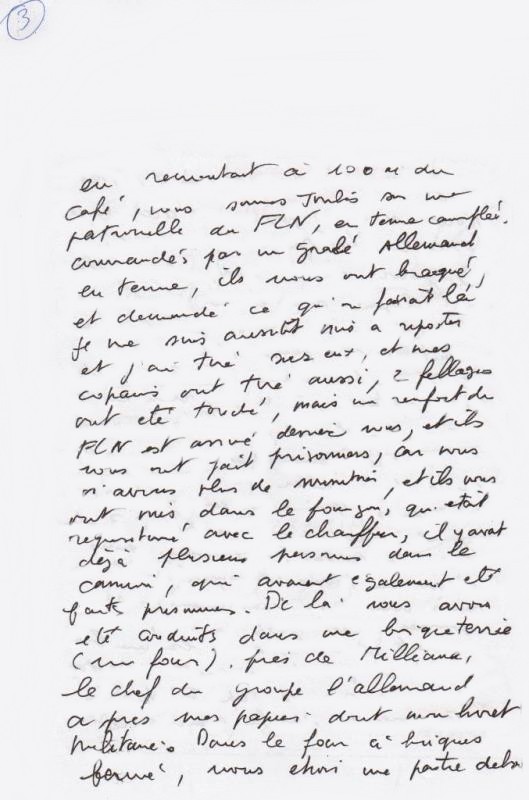 3
en remontant à 100 m du
café, nous sommes tombés sur une
patrouille du FLN, en tenue camflée.
commandés par un gradé Allemand
en tenue, ils nous ont braqué,
et demandé ce qu'on faisait là
je me suis aussitôt mis a
et j'ai tiré sur eux, et mes
copains ont tiré aussi, 2 fellagas
ont été touché, mais un renfort du
FLN est arrivé derrière nous, et ils
nous ont fait prisonniers, car nous
n'avions plus de munitions, et ils nous
ont mis dans le fourgon, qui était
requisitionné avec le chauffeur, il y avait
déjà plusieurs personnes dans le
camion, qui avaient également eté
faits prisonniers. De là nous avons
eté conduits dans une briqueterie
(un four). près de Milliana,
le chef du groupe l'allemand
a pris mes papiers dont mon livret
militaire. Dans le four à briques
fermé, nous etions une partie